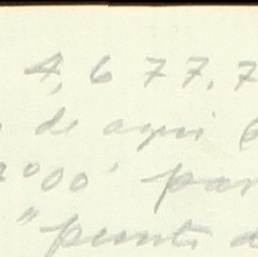 4,677.7
de aqui
2°00' par
"punto d